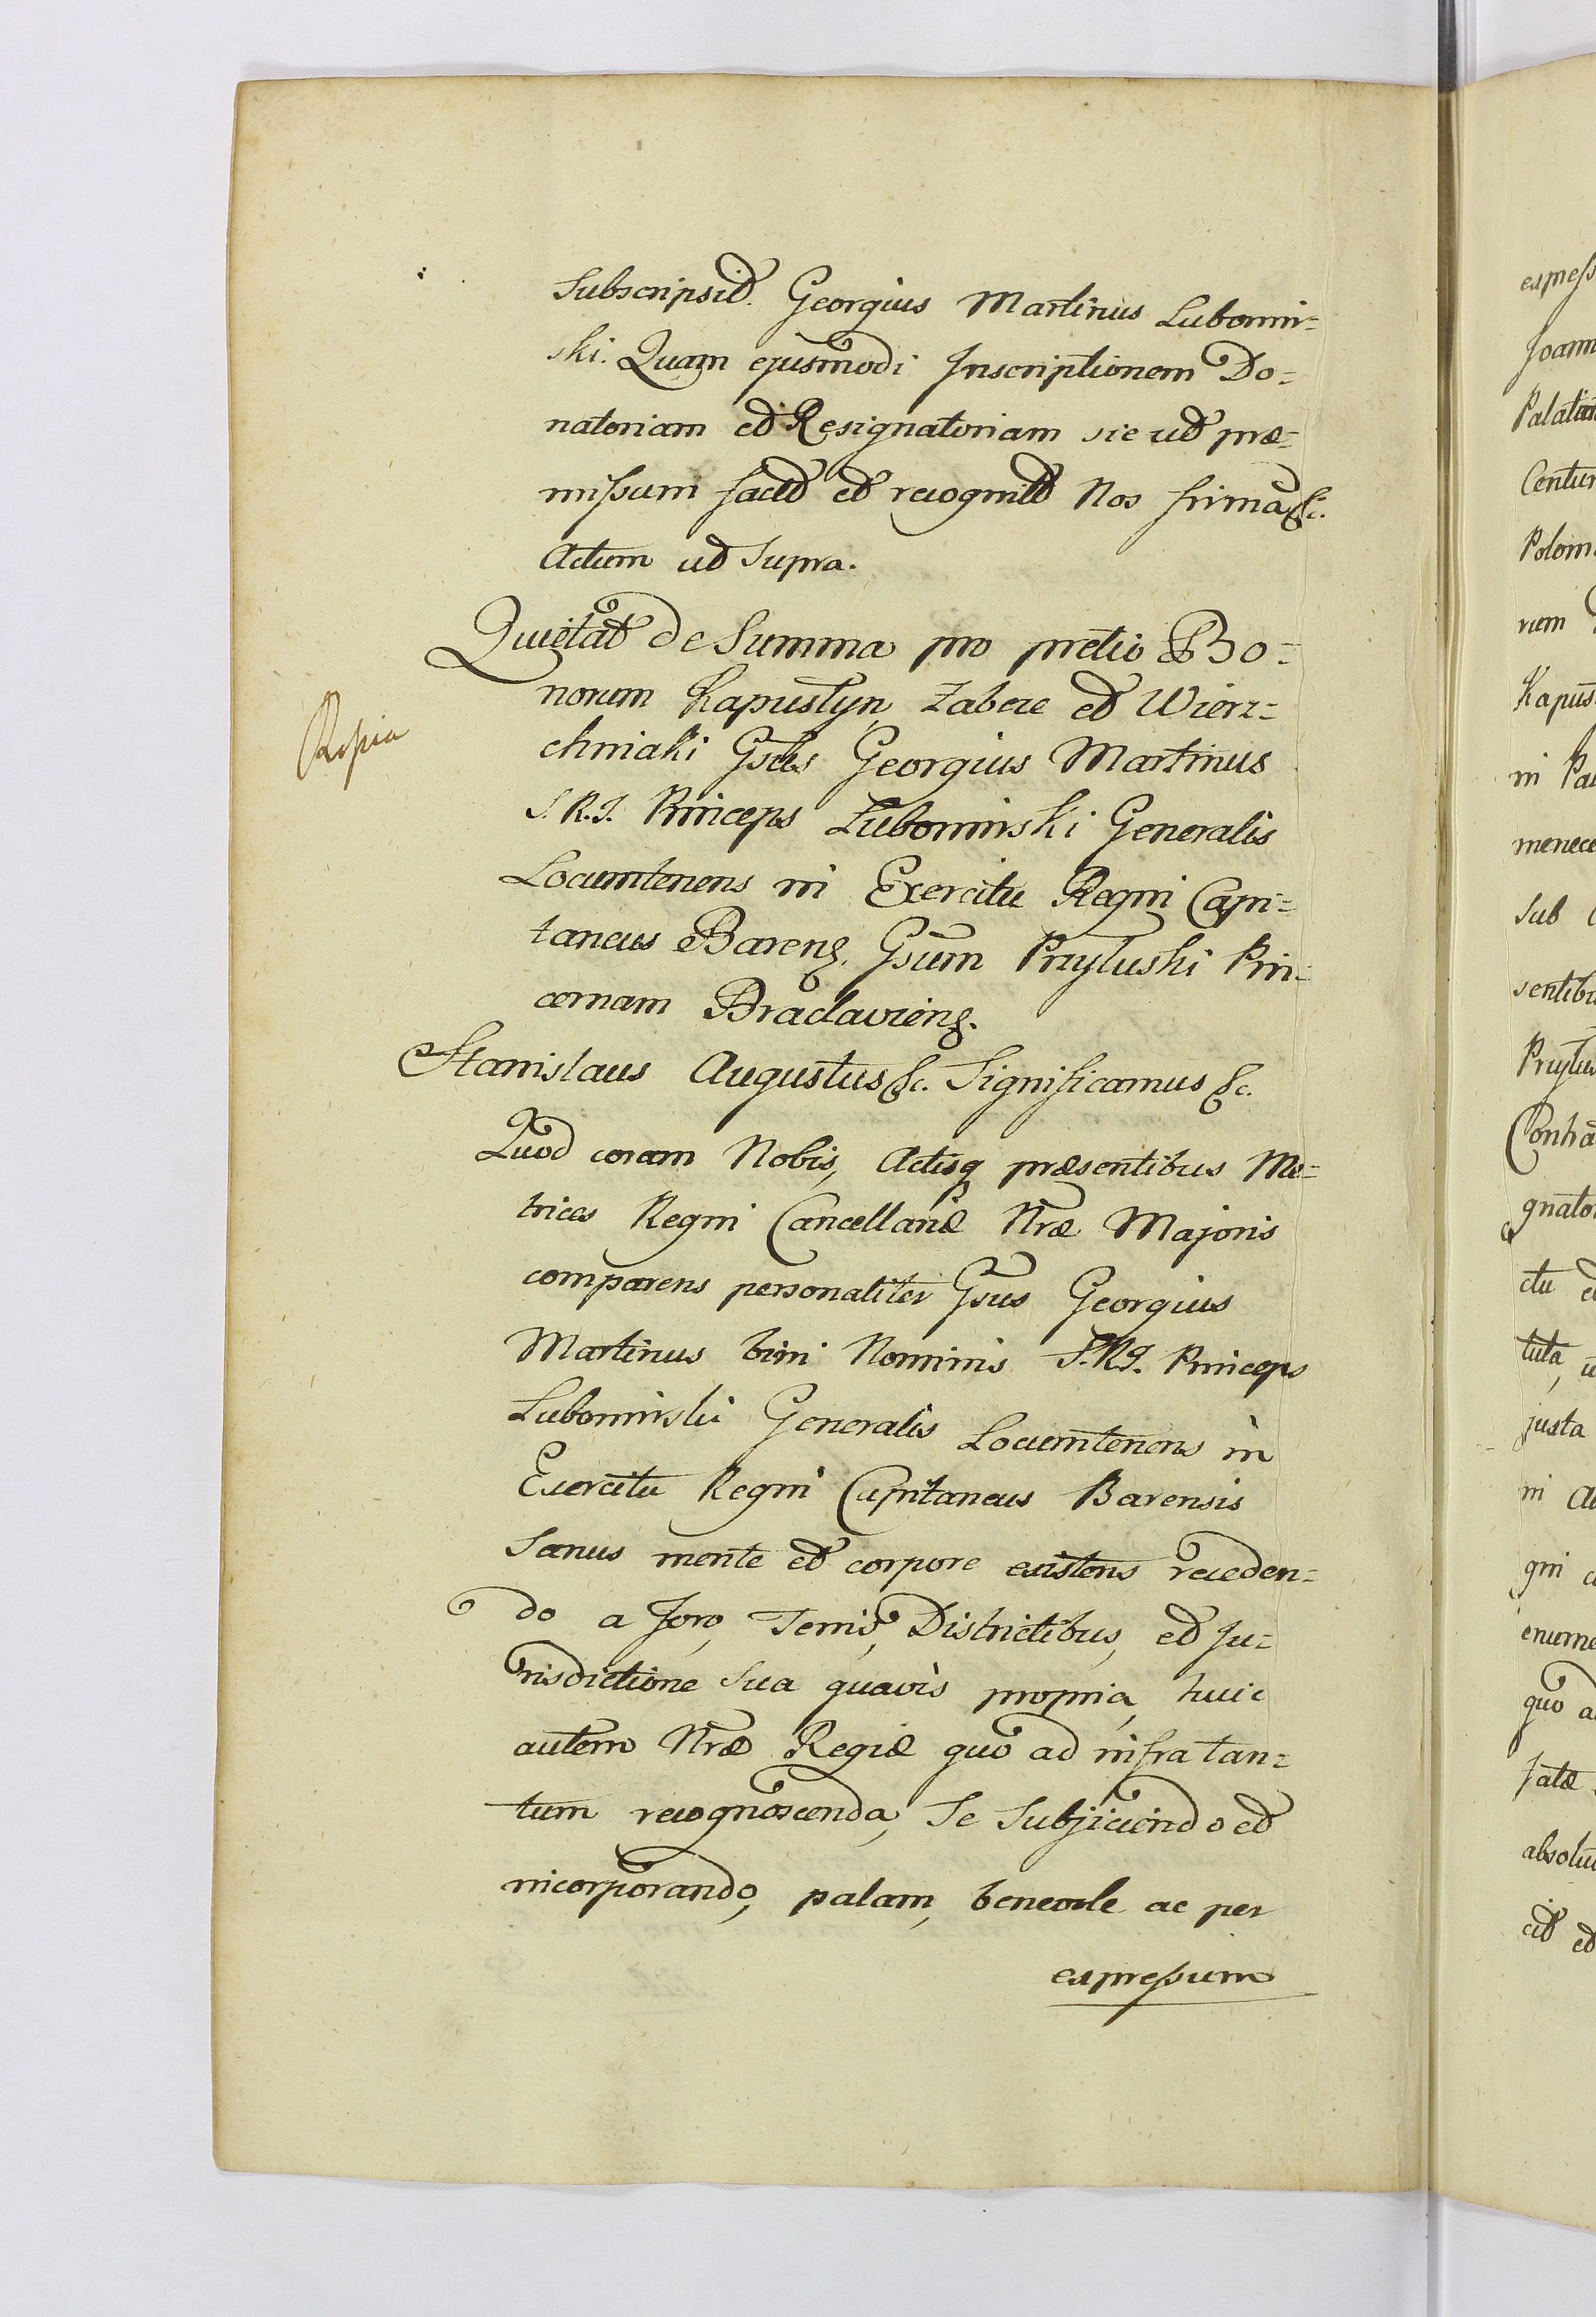 Subscripsit. Georgius Martinus Lubomir=
ski. Quam ejusmodi Inscriptionem Do=
natoriam et Resignatoriam sic ut præ=
missum facit et recognit Nos firma &c.
Actum ut Supra.
Quietat de Summa pro pretio Bo=
norum Kapustyn, Zabere et Wierz=
chniaki Gsus Georgius Martinus
S. R. I. Princeps Lubomirski Generalis
Locumtenens in Exercitu Regni Capi=
taneus Barens. Gsum Pruſluski Pin=
cernam Braclaviens.
Stanislaus Augustus &c. Significamus &c.
Quod coram Nobis, Actisq præsentibus Me=
trices Regni Cancellariæ Nræ Majoris
comparens personaliter Gsus Georgius
Martinus bini Nominis S. R. I. Princeps
Lubomirski Generalis Locumtenens in
Exercitu Regni Capitaneus Barensis
Sanus mente et corpore existens receden=
do a Foro, Terris, Districtibus, et Ju=
risdictione Sua quavis propria, huic
autem Nræ Regiæ quo ad infra tan=
tum recognoscenda, Se Subjiciendo et
incorporando, palam, benevole ac per
expressum
Kopia
expreſs
Joann
Palatin
Centur
Polon
rum
Kapus
in Pa
menece
Sub
sentibu
Contra
gnato
ctu e
tuta, u
justa
in A
gni c
enume
quo a
absolu
cit et